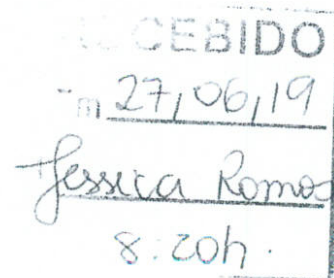 RECEBIDO
Em 27,06,19
Jessica Romo
8:20h.